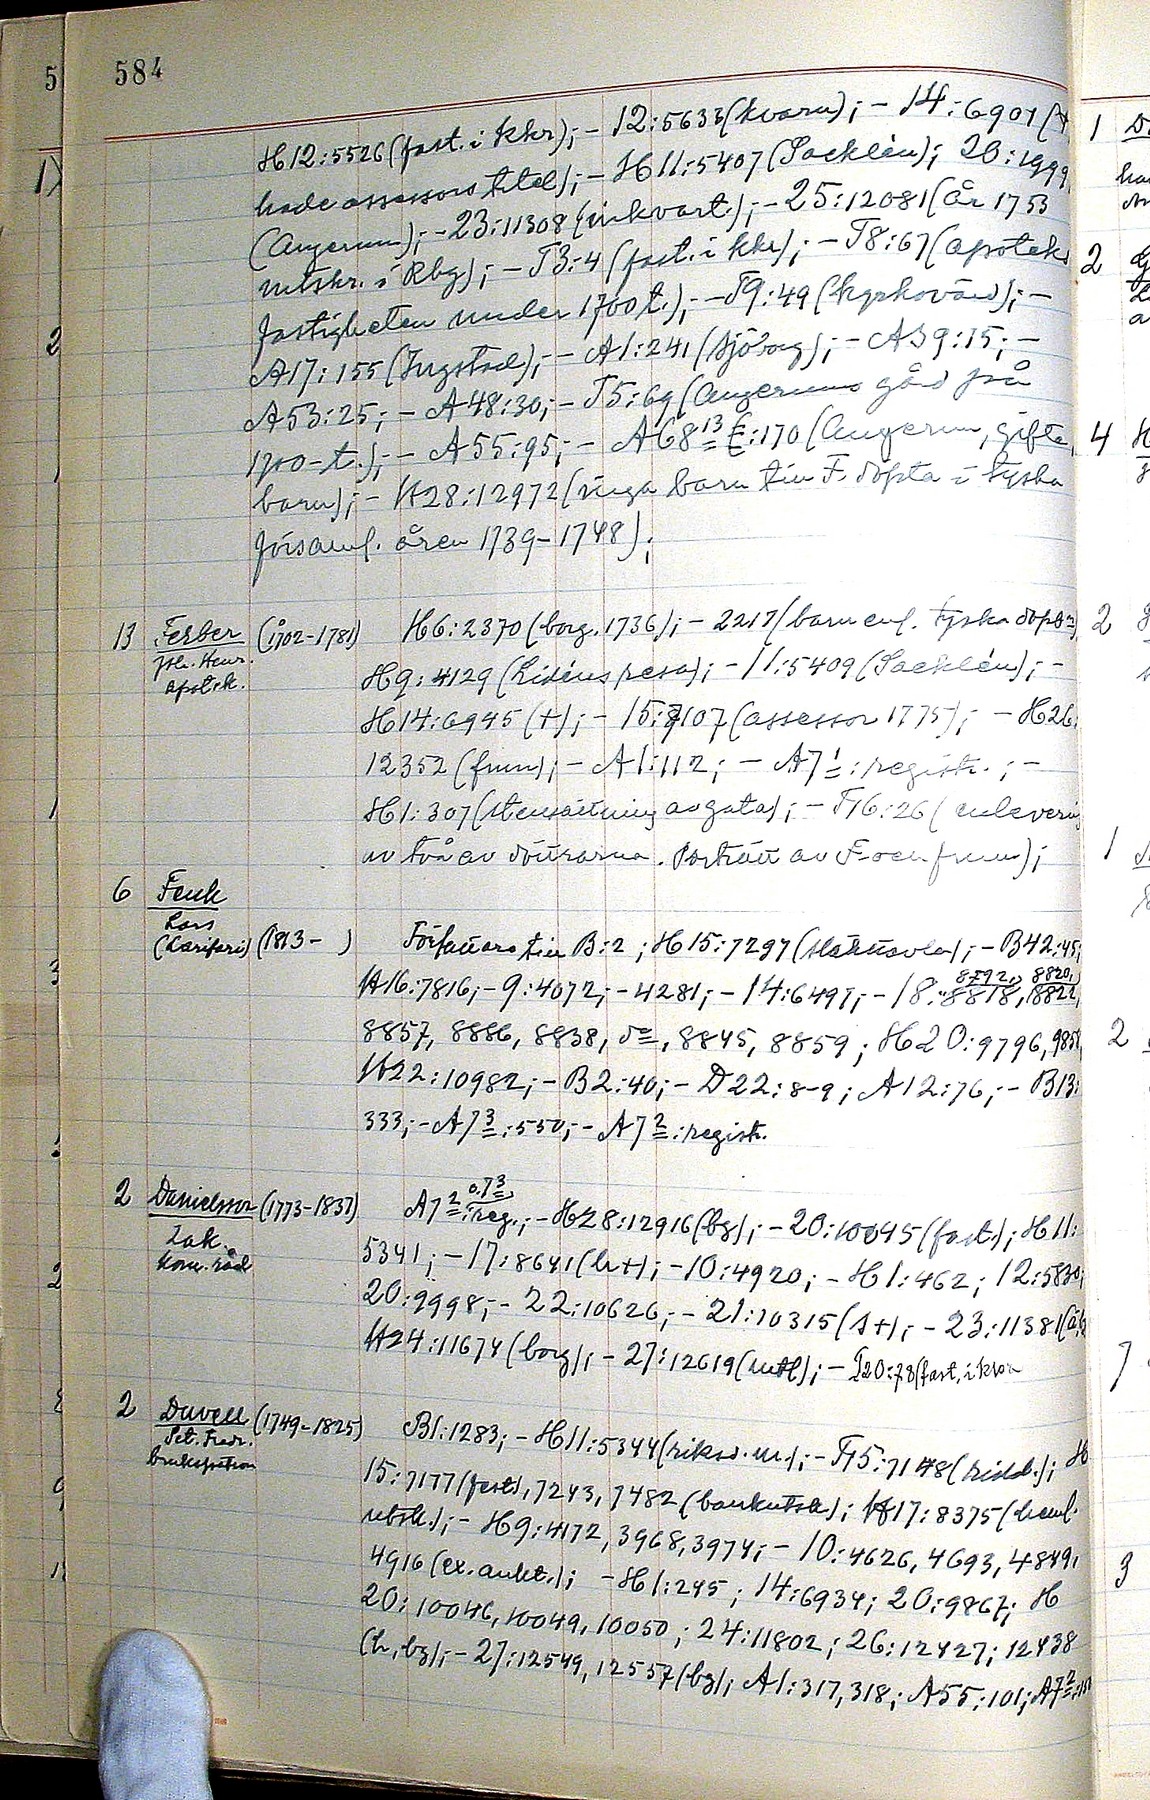 584
H12:5526 (fast. i kkr); - 12:5633 (kvarn); - 14:6901
hade assessors titel); - H11:5407 (Sacklén); 20:1999
(Augerum); - 23:11308 (inkvart.); - 25:12081 (år 1753
i Rbg); - T3:4 (fast. i kkr); - T8:67 (apoteks
fastigheten under 1700 t.); - T9:49 (kyrkovärd); -
A17:155 (Ingstad); - A1:241 (Sjöborg); - A39:15; -
A53:25; - A48:30; - T5:69 (Augerums gård på
1700-t.); - A55:95; - A68 13 E:170 (Augerum, gifte,
barn); - H28:12972 (inga barn till F. döpta i tyska
församl. åren 1739-1748);
13 Ferber (1702-1781) H6:2370 (borg. 1736); - 2217 (barn enl. tyska
Joh. Henr.
apotek.
H9:4129 (Lidéns resa); - 11:5409 (Sacklén); -
H14:6945 (+); - 15:7107 (assessor 1775); - H26:
12352 (frun); - A1:112; - A7 1: registr.; -
H1:307 (stensättning av gata); - T16:26 (enlevering
av två av döttrarna. Porträtt av F. och frun);
6 Fenk
Lars
(Larifari) (1813- ) Författare till B:2; H15:7297 - B42:45;
H16:7816; - 9:4072; - 4281; - 14:6497; - 18: 8792, 8820, 8818, 8822,
8857, 8886, 8838, 8845, 8859; H20:9796,
H22:10982; - B2:40; - D22:8-9; A12:76; - B13:
333; - A7 3:550; - A7 2: registr.
2 Danielsson (1773-1837) A7 2 o. 7 3: reg.; - H28:12916 (bg); - 20:10045 (fast.); H11:
Zak.
kom. råd
5341; - 17:8641 (h+); - 10:4920; - H1:462; 12:5830;
20:9998; - 22:10626; - 21:10315 (s+); - 23:11381
H24:11674 (borg); - 27:12619 - T20:78 (fast. i kkr
2 Duvell (1749-1825) B1:1283; - H11:5344 (riksd. m.); - T15:7148 (ridd.); H
Pet. Fredr.
brukspatron
15:7177 (fast), 7243, 7482 (bankutsk.); H17:8375 (heml.
utsk.); - H9:4172, 3968, 3974; - 10:4626, 4693, 4849,
4916 (ex. aukt.); - H1:245; 14:6934; 20:9867; H
20:10046, 10049, 10050; 24:11802; 26:12427; 12438
(h, bg); - 27:12549, 12557 (bg); A1:317, 318; A55:101; A7 2: